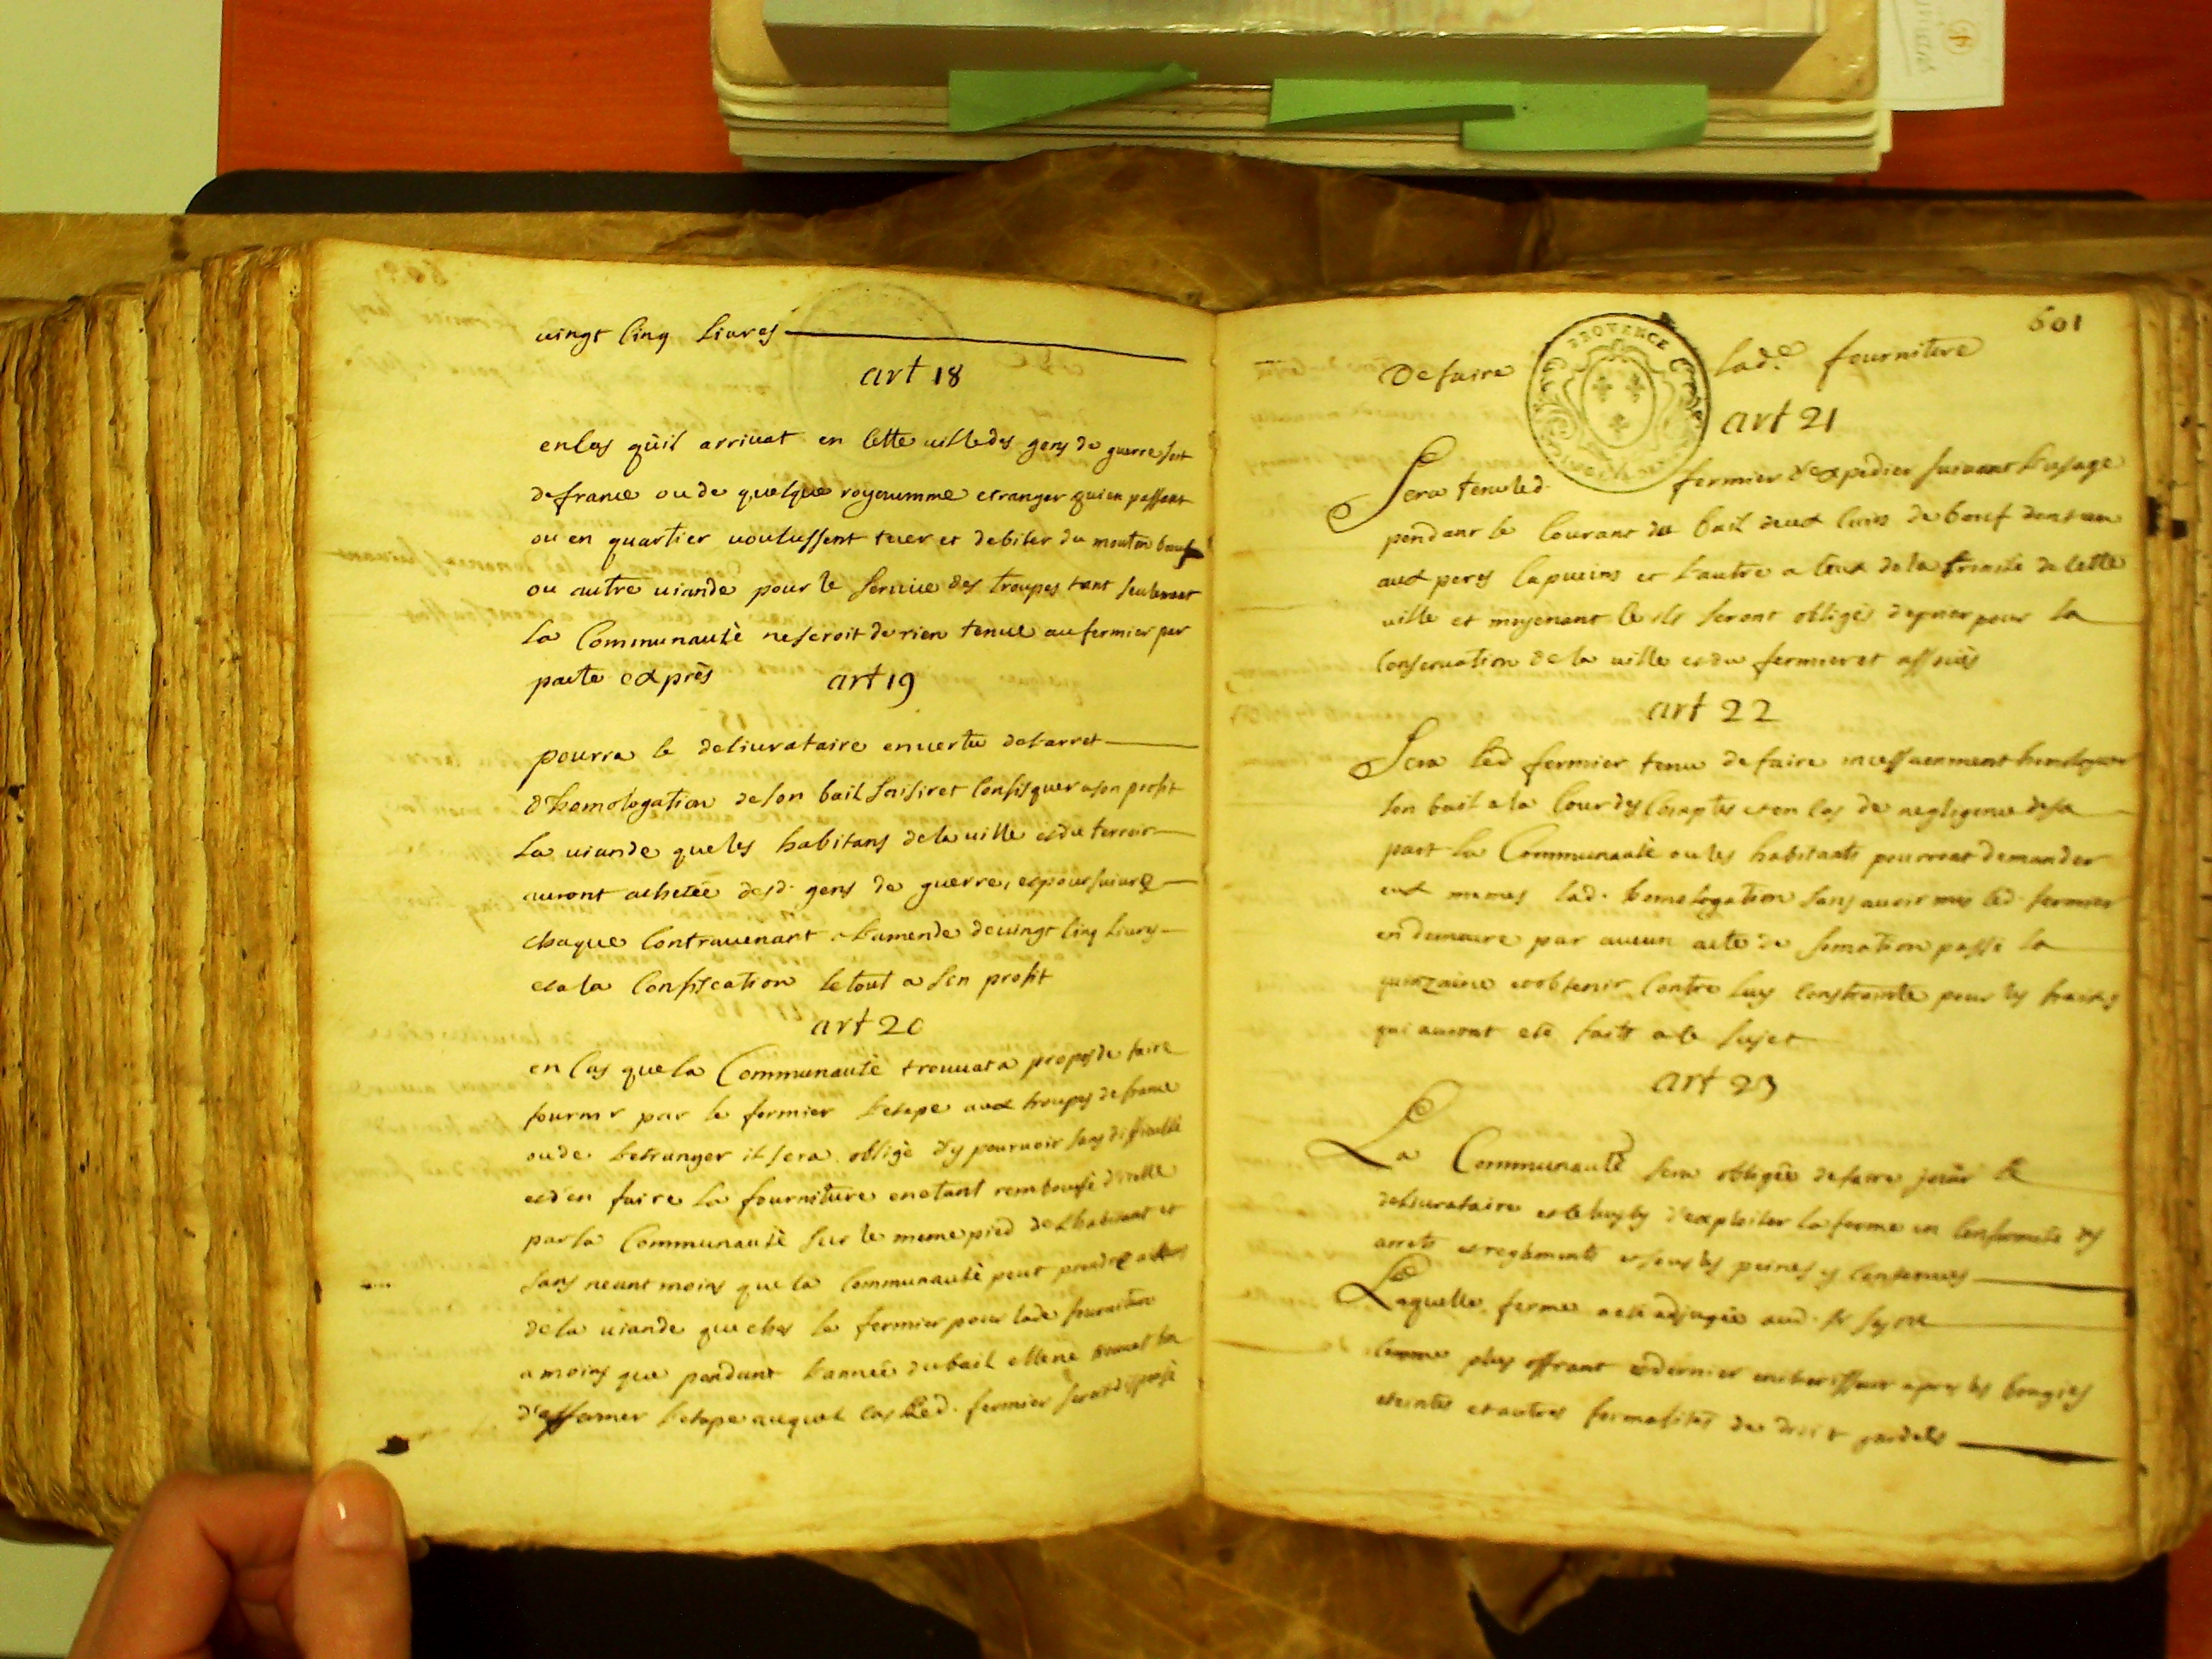 vingt cinq livres
art 18
en cas qu'il arrivat en cette ville des gens de guerre soit
de france ou de quelque royaumme etranger qui en passant
ou en quartier voulussent tuer et debiter du mouton boeuf
ou autre viande pour le service des troupes tant seulement
la Communauté ne seroit de rien tenue au fermier par
pacte exprès
art 19
pourra le delivrataire en vertu de l'arret
d'homologation de son bail saisir et confisquer a son profit
la viande que les habitans de la ville et du terroir
auront achetée desd. gens de guerre, et poursuivre
chaque contrevenant a l'amende de vingt cinq livres
et a la confiscation le tout a son profit
art 20
en cas que la Communauté trouvat a propos de faire
fournir par le fermier l'etape aux troupes de france
ou de l'etranger il sera obligé d'y pourvoir sans difficulté
et d'en faire la fourniture en etant remboursé d'icelle
par la Communauté sur le meme pied de l'habitant et
sans neantmoins que la Communauté peut prendre
de la viande que chés le fermier pour lade fourniture
a moins que pendant l'année du bail elle ne
d'affermer l'etape auquel cas led. fermier serait dispensé
601
PROVENCE
De faire lad.e fourniture
art 21
Sera tenu led. fermier d'expedier suivant l'usage
pendant le courant du bail deux cuirs de boeuf dont un
aux peres capucins et l'autre a ceux de la trinité de cette
ville et moyenant ce ils seront obligés de prier pour la
conservation de la ville et du fermier et associés
art 22
Sera led fermier tenu de faire incessamment homologuer
son bail a la Cour des Comptes et en cas de negligence de sa
part la Communauté ou les habitants pourront demander
eux memes lad. homologation sans avoir mis led. fermier
en demeure par aucun acte de somation passé la
quinzaine et obtenir contre luy constrainte pour les fraix
qui auront eté faits a ce sujet
art 23
La Communauté sera obligée de faire jouir le
delivrataire et ses d'exploiter la ferme en conformité des
arrets et reglements et sous les peines y contenues
Laquelle ferme a eté adjugée aud. Sr
comme plus offrant et dernier encherisseur apres les bougies
eteintes et autres formalités de droit gardées